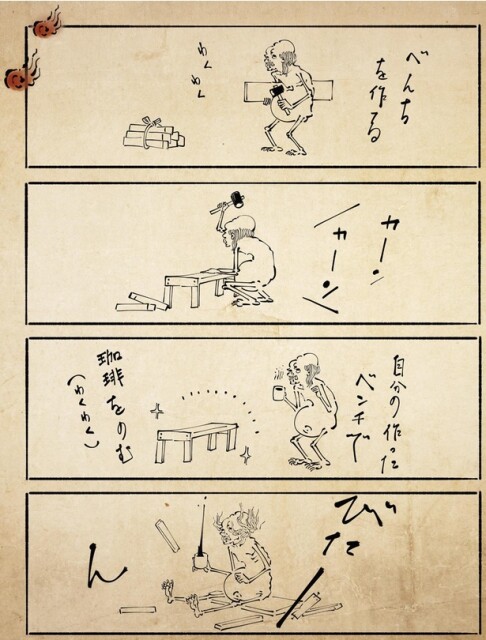 べんち
を作る
わくわく
カーン
カーン
自分の作った
ベンチで
珈琲をのむ
（わくわく）
びたー
ん